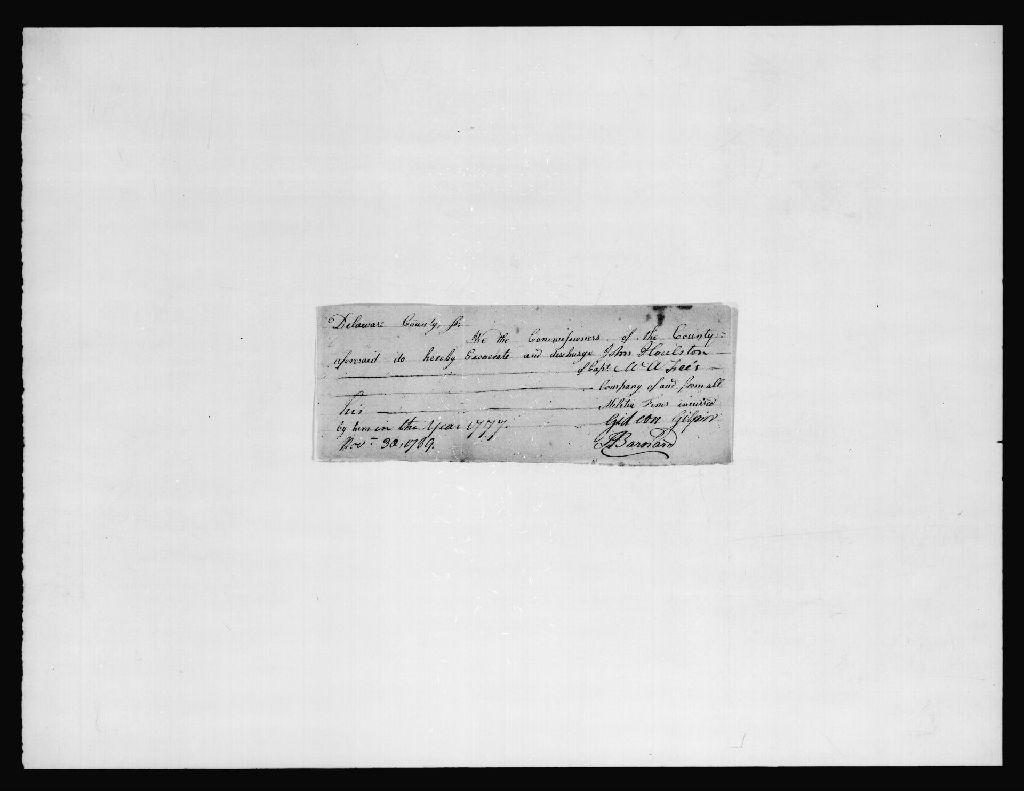 Delaware County, ss
We the Commissioners of the County
aforesaid do hereby Exonerate and discharge John Houlston
of Capt. McFee's
Company of and from all
his Militia Fines incurred
by him in the Year 1777.
Novr 30, 1789.
Gideon Gilpin
Barnard